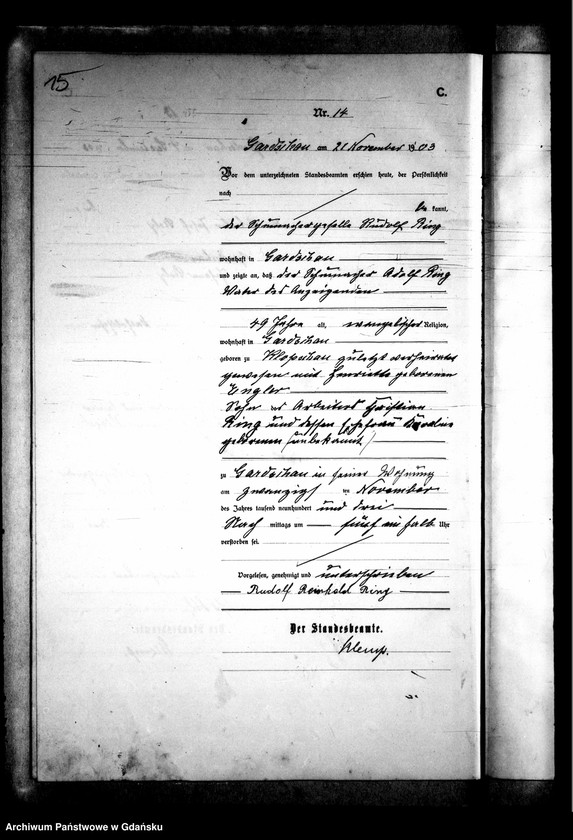 15
C.
Nr. 14
Gardschau am 21 November 1903
Vor dem unterzeichneten Standesbeamten erschien heute, der Persönlichkeit
nach
be kannt,
der Schumachergeselle Rudolf Ring
wohnhaft in Gardschau
und zeigte an, daß der Schumacher Adolf Ring
Vater des Anzeigenden
49 Jahre alt, evangelischer Religion,
wohnhaft in Gardschau
geboren zu Klopschau zuletzt verheiratet
gewesen mit Henriette geborenen
Engler
Sohn des Arbeiters Christian
Ring und dessen Ehefrau
geborenen (unbekannt)
zu Gardschau in seiner Wohnung
am zwanzigs ten November
des Jahres tausend neunhundert und drei
Nach mittags um fünf ein halb Uhr
verstorben sei.
Vorgelesen, genehmigt und unterschrieben
Rudolf Reinhold Ring
Der Standesbeamte.
Klemp.
Archiwum Państwowe w Gdańsku